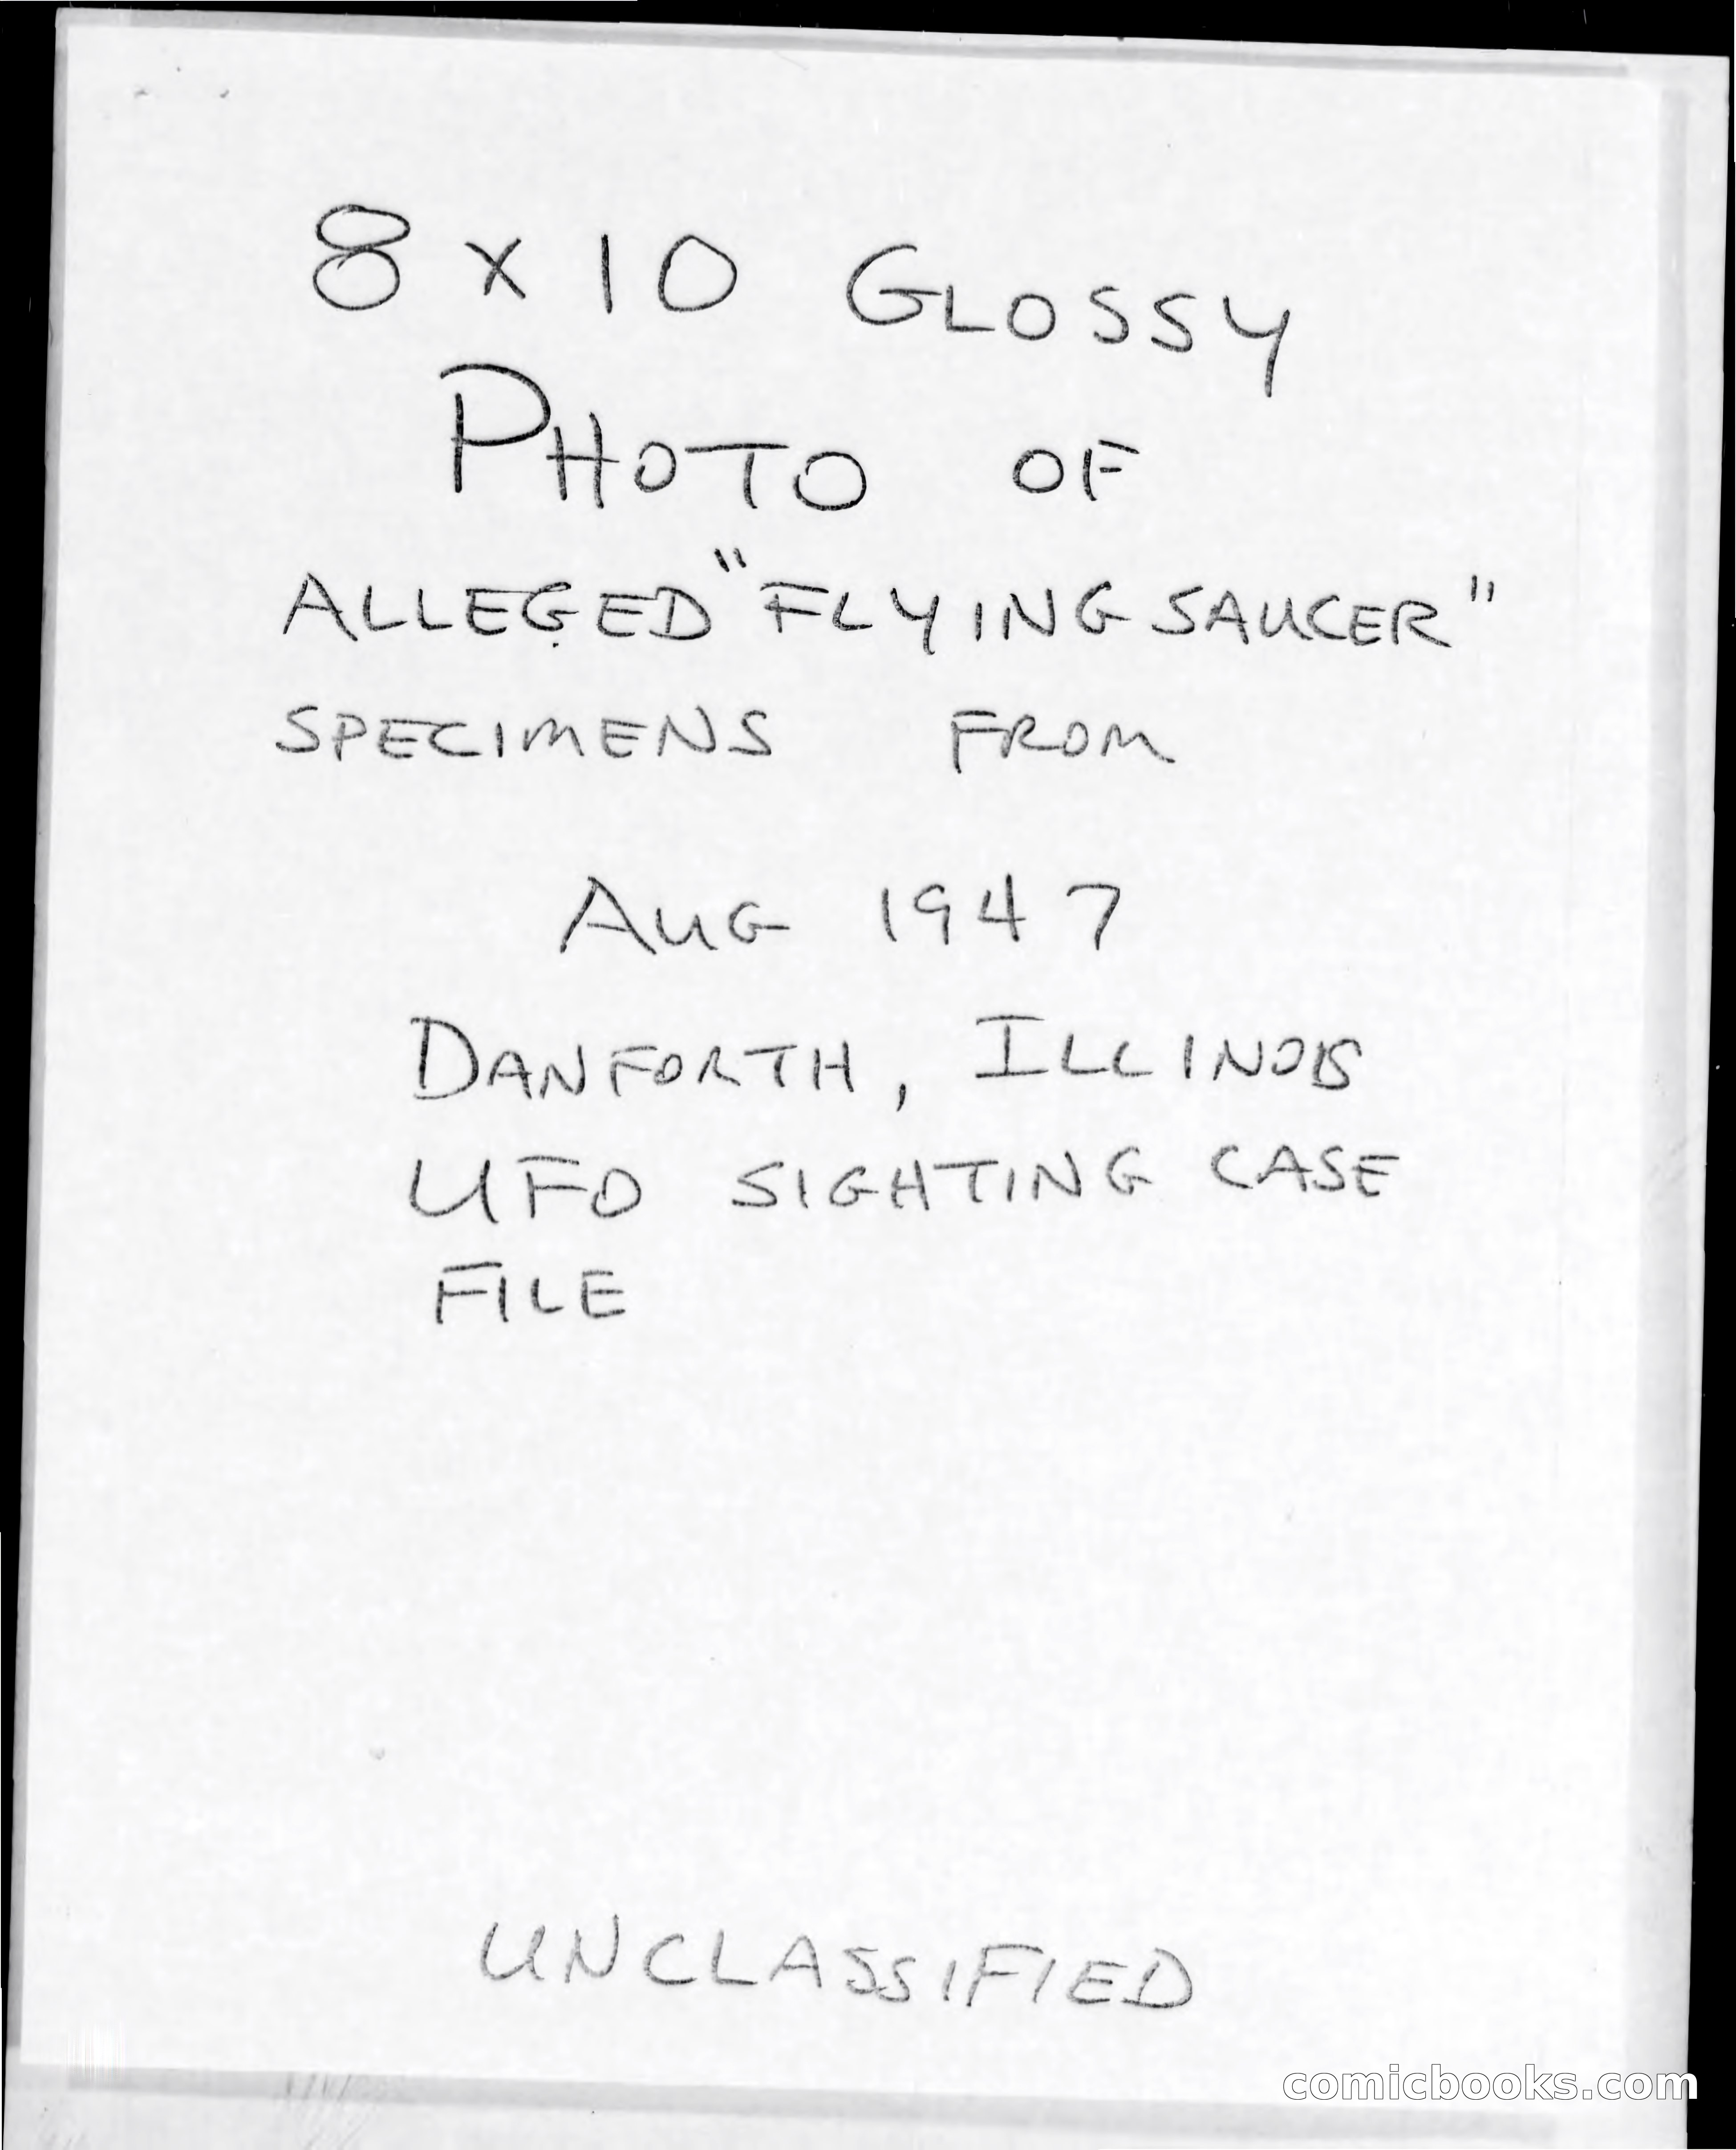 8 x 10 GLOSSY
PHOTO OF
ALLEGED "FLYING SAUCER"
SPECIMENS FROM
AUG 1947
DANFORTH, ILLINOIS
UFO SIGHTING CASE
FILE
UNCLASSIFIED
comicbooks.com